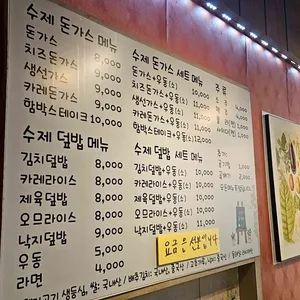 수제 돈가스 메뉴
돈가스 8,000
치즈돈가스 9,000
생선가스 9,000
카레돈가스 9,000
함박스테이크 10,000
수제 덮밥 메뉴
김치덮밥 8,000
카레라이스 8,000
제육덮밥 8,000
오므라이스 9,000
낙지덮밥 9,000
우동 5,000
라면 4,000
수제 돈가스 세트메뉴
돈가스+우동(소) 10,000
치즈돈가스+우동(소) 11,000
생선가스+우동(소) 11,000
카레돈가스+우동(소) 11,000
함박스테이크+우동(소) 12,000
수제 덮밥 세트 메뉴
김치덮밥+우동(소) 10,000
카레라이스+우동(소) 10,000
제육덮밥+우동(소) 10,000
오므라이스+우동(소) 11,000
낙지덮밥+우동(소) 11,000
요금은 선불입니다
주류